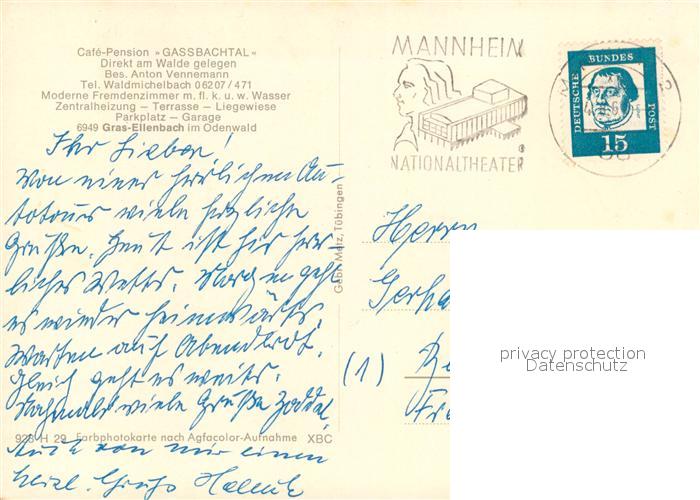 Café-Pension »GASSBACHTAL«
Direkt am Walde gelegen
Bes. Anton Vennemann
Tel. Waldmichelbach 06207 / 471
Moderne Fremdenzimmer m. fl. k. u. w. Wasser
Zentralheizung — Terrasse — Liegewiese
Parkplatz — Garage
6949 Gras-Ellenbach im Odenwald
Ihr Lieben!
Von einer herrlichen Au-
totour viele herzliche
Grüße. Heut ist hier herr-
liches Wetter. Morgen geht
es wieder heimwärts.
Warten auf Abendbrot.
Gleich geht es weiter.
Nochmals viele Grüße
Auch von mir einen
herzl. Gruß
928 H 29 Farbphotokarte nach Agfacolor-Aufnahme XBC
Gebr. Metz, Tübingen
MANNHEIM
NATIONALTHEATER
DEUTSCHE BUNDES POST
15
Herrn
Gerha
(1)
privacy protection
Datenschutz